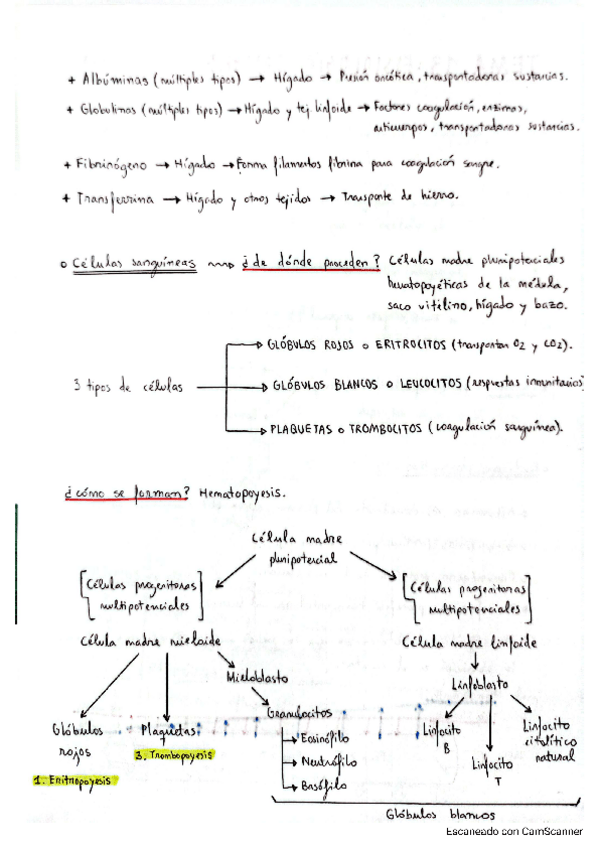 + Albúminas (múltiples tipos) → Hígado → Presión oncótica, transportadoras sustancias.
+ Globulinas (múltiples tipos) → Hígado y tej linfoide → Factores coagulación, enzimas,
anticuerpos, transportadoras sustancias.
+ Fibrinógeno → Hígado → Forma filamentos fibrina para coagulación sangre.
+ Transferrina → Hígado y otros tejidos → Transporte de hierro.
o Células sanguíneas ⟿ ¿de dónde proceden? Células madre pluripotenciales
hematopoyéticas de la médula,
saco vitelino, hígado y bazo.
→ GLÓBULOS ROJOS o ERITROCITOS (transportan O2 y CO2).
3 tipos de células → GLÓBULOS BLANCOS o LEUCOCITOS (respuestas inmunitarias)
→ PLAQUETAS o TROMBOCITOS (coagulación sanguínea).
¿cómo se forman? Hematopoyesis.
Célula madre
pluripotencial
[Células progenitoras
multipotenciales]
[Células progenitoras
multipotenciales]
Célula madre mieloide
Célula madre linfoide
Mieloblasto
Linfoblasto
Granulocitos
→ Eosinófilo
→ Neutrófilo
→ Basófilo
Glóbulos
rojos
1. Eritropoyesis
Plaquetas
3. Trombopoyesis
Linfocito
B
Linfocito
T
Linfocito
citolítico
natural
Glóbulos blancos
Escaneado con CamScanner